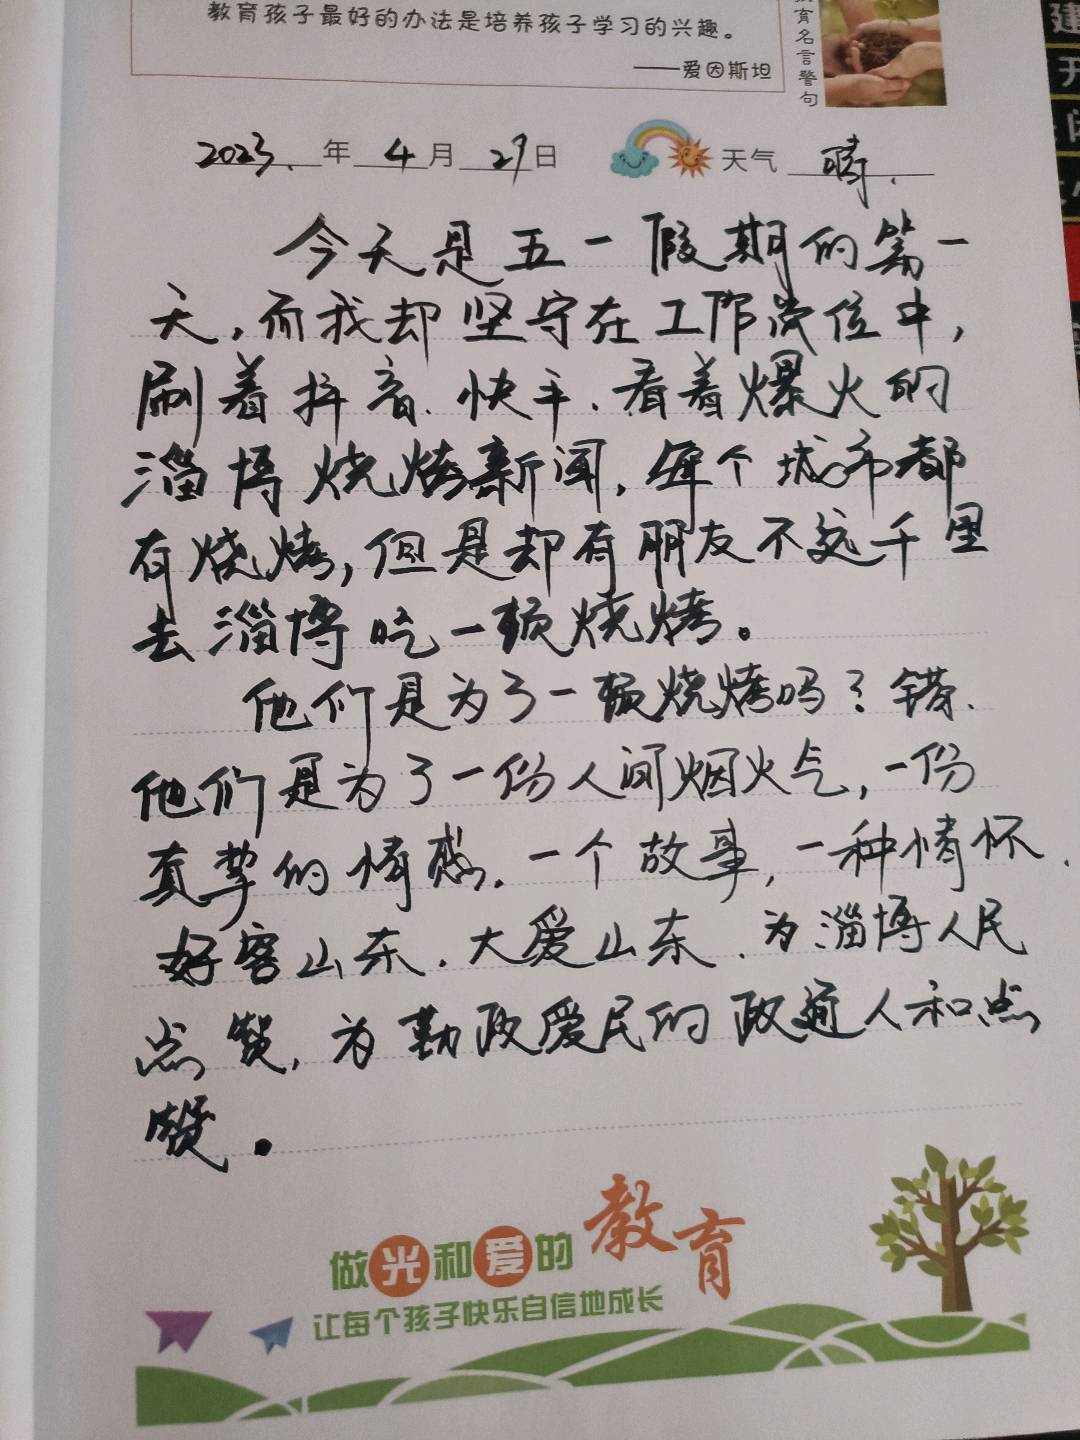 教育孩子最好的办法是培养孩子学习的兴趣。
——爱因斯坦
育名言警句
2023.年4月29日 天气 晴.
今天是五一假期的第一
天,而我却坚守在工作岗位中,
刷着抖音、快手、看着爆火的
淄博烧烤新闻,每个城市都
有烧烤,但是却有朋友不远千里
去淄博吃一顿烧烤。
他们是为了一顿烧烤吗?错、
他们是为了一份人间烟火气,一份
真挚的情感,一个故事,一种情怀、
好客山东、大爱山东、为淄博人民
点赞,为勤政爱民的政通人和点
赞。
做光和爱的教育
让每个孩子快乐自信地成长
建
开